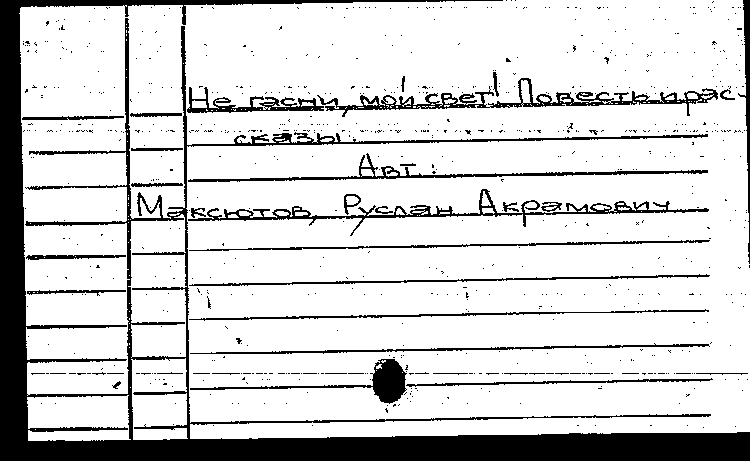 Не гасни, мой свет! Повесть и рас-
сказы.
Авт.:
Максютов, Руслан Акрамович